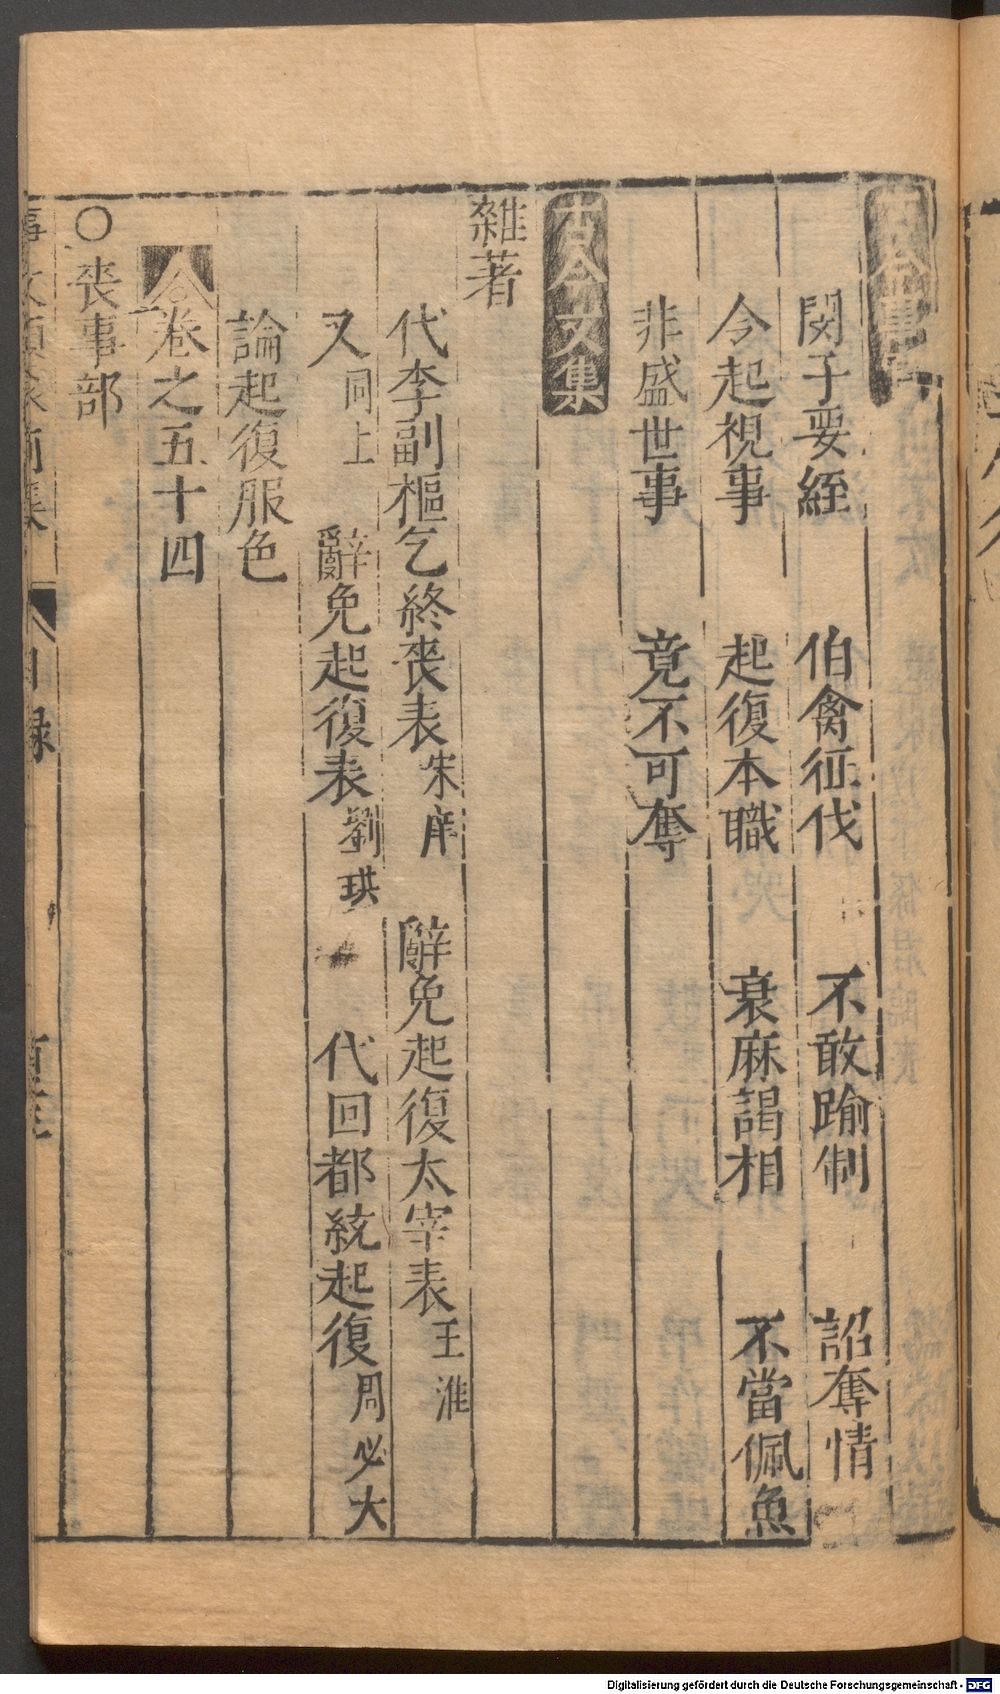 古今事實
閔子要絰 伯禽征伐 不敢踰制 詔奪情
令起視事 起復本職 衰麻謁相 不當佩魚
非盛世事 竟不可奪
古今文集
雜著
代李副樞乞終喪表 宋庠 辭免起復太宰表 王淮
又 同上 辭免起復表 劉珙 代回都統起復 周必大
論起復服色
卷之五十四
○喪事部
事文類聚前集 目録
Digitalisierung gefördert durch die Deutsche Forschungsgemeinschaft - DFG